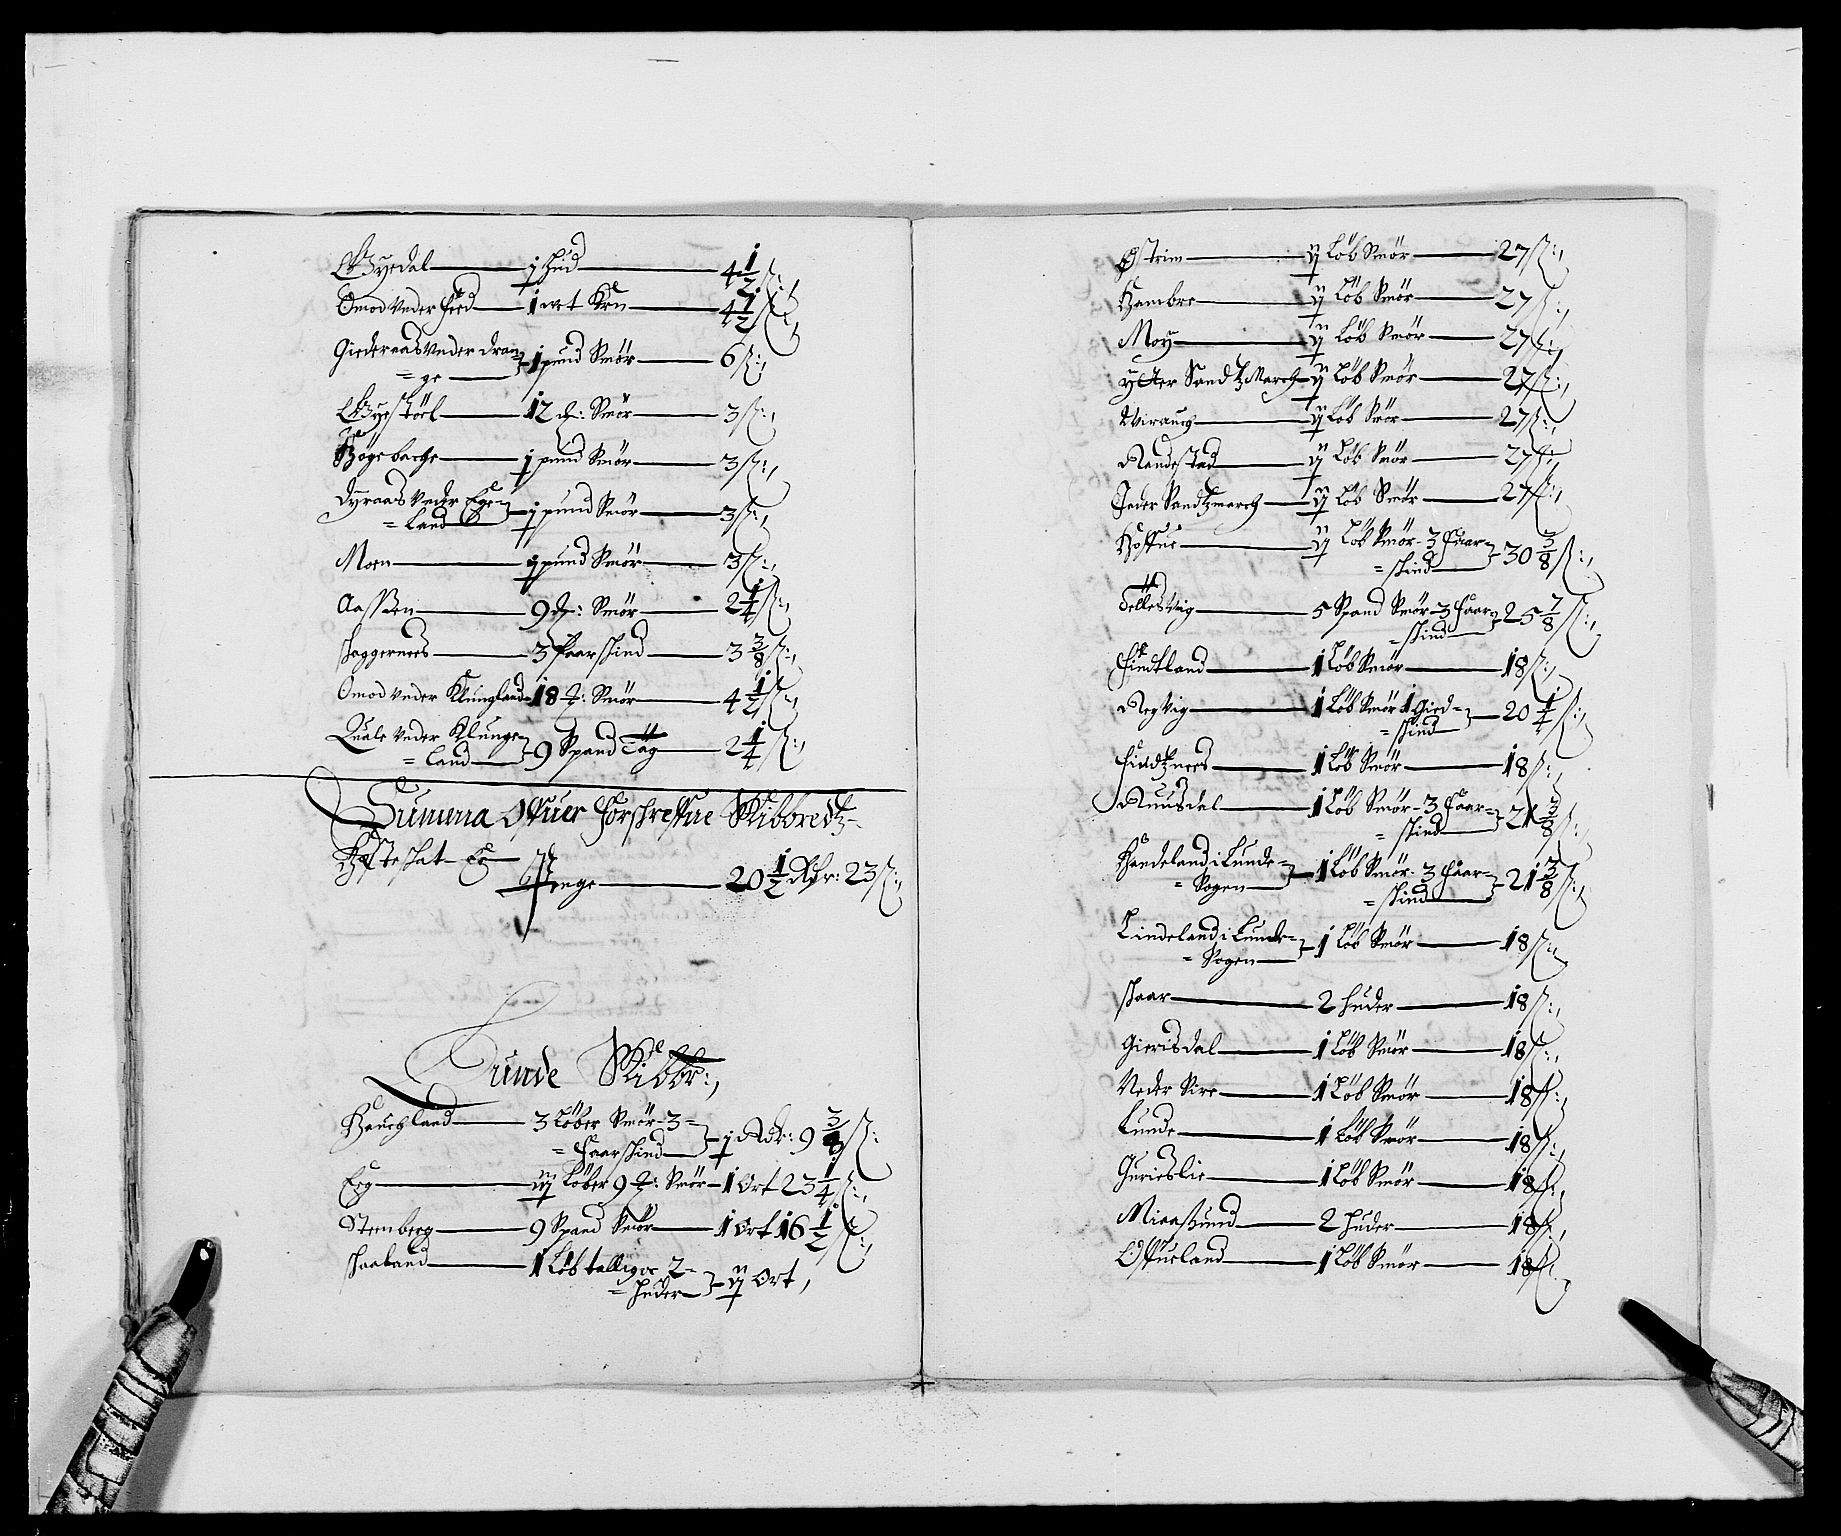 Gyedal — j Hud — 4½ ß:,
Omod Under Fed — 1 ort Korn — 4½ ß:,
Giedenaas Under Dran=
= ge — 1 pund Smör — 6 ß:,
Gyestöel — 12 ℔: Smör — 3 ß:,
Högebache — j pund Smör — 3 ß:,
Dyraas Under Ege=
= Land — j pund Smör — 3 ß:,
Moen — j pund Smör — 3 ß:,
Aassen — 9 ℔: Smör — 2¼ ß:,
Skaggernees — 3 Faarskind — 3 3/8 ß:,
Omod Under Klungland — 18 ℔: Smör — 4½ ß:,
Quale Under Klunge=
= Land — 9 Spand Tag — 2¼ ß:,
Summa Offuer Forschreffne Skibbredtz
Höste skat — Er
Penge — 20½ Rdr: 23 ß:,
Lunde Skibbr:,
Haugland — 3 Løber Smör - 3 =
= Faarskind — j Rdr: 9 3/8 ß:
Eeg — iij Løber 9 ℔: Smör — 1 Ort 23¼ ß:,
Stemberg — 9 Spand Smör — 1 Ort 16½ ß:,
Skaaland — 1 Løb talliger 2 =
= Huder — ij Ort,
Østrim — ij Løb Smör — 27 ß:,
Hambre — ij Løb Smör — 27 ß:,
Moy — ij Løb Smör — 27 ß:,
Ytter Sandtzmarch — ij Løb Smör — 27 ß:,
Virauch — ij Løb Smör — 27 ß:,
Nandestad — ij Løb Smör — 27 ß:,
Inder Sandtzmarch — ij Løb Smör — 27 ß:,
Hoffue — ij Løb Smör - 3 Faar=
= skind — 30 3/8 ß:,
Tellesvig — 5 Spand Smör 3 Faar=
= skind — 25 7/8 ß:,
Findtland — 1 Løb Smör — 18 ß:,
Regvig — 1 Løb Smör 1 Gied=
= skind — 20¼ ß:,
Findtznees — 1 Løb Smör — 18 ß:,
Ruusdal — 1 Løb Smör - 3 Faar=
= skind — 21 3/8 ß:,
Handeland i Lunde=
= Sogen — 1 Løb Smör - 3 Faar=
= skind — 21 3/8 ß:,
Lindeland i Lunde=
= Sogen — 1 Løb Smör — 18 ß:,
Skaar — 2 Huder — 18 ß:,
Gierisdal — 1 Løb Smör — 18 ß:,
Neder Sire — 1 Løb Smör — 18 ß:,
Lunde — 1 Løb Smör — 18 ß:,
Gurieslie — 1 Løb Smör — 18 ß:,
Miaasund — 2 Huder — 18 ß:,
Offuerland — 1 Løb Smör — 18 ß:,